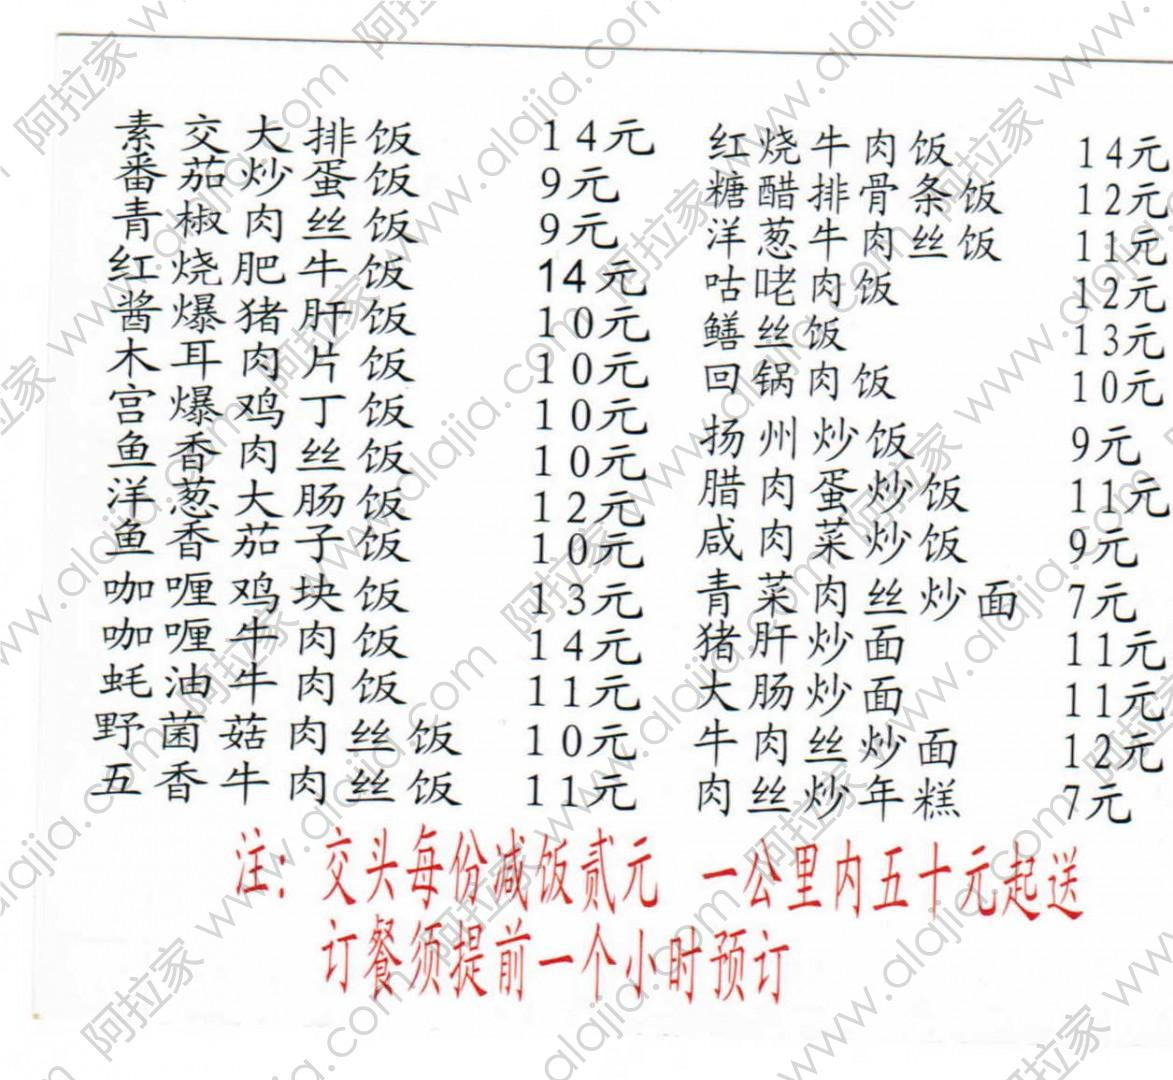 素交大排饭 14元
番茄炒蛋饭 9元
青椒肉丝饭 9元
红烧肥牛饭 14元
酱爆猪肝饭 10元
木耳肉片饭 10元
宫爆鸡丁饭 10元
鱼香肉丝饭 10元
洋葱大肠饭 12元
鱼香茄子饭 10元
咖喱鸡块饭 13元
咖喱牛肉饭 14元
蚝油牛肉饭 11元
野菌菇肉丝饭 10元
五香牛肉丝饭 11元
红烧牛肉饭 14元
糖醋排骨条饭 12元
洋葱牛肉丝饭 11元
咕咾肉饭 12元
鳝丝饭 13元
回锅肉饭 10元
扬州炒饭 9元
腊肉蛋炒饭 11元
咸肉菜炒饭 9元
青菜肉丝炒面 7元
猪肝炒面 11元
大肠炒面 11元
牛肉丝炒面 12元
肉丝炒年糕 7元
注：交头每份减饭贰元 一公里内五十元起送
订餐须提前一个小时预订
阿拉家 www.alajia.com